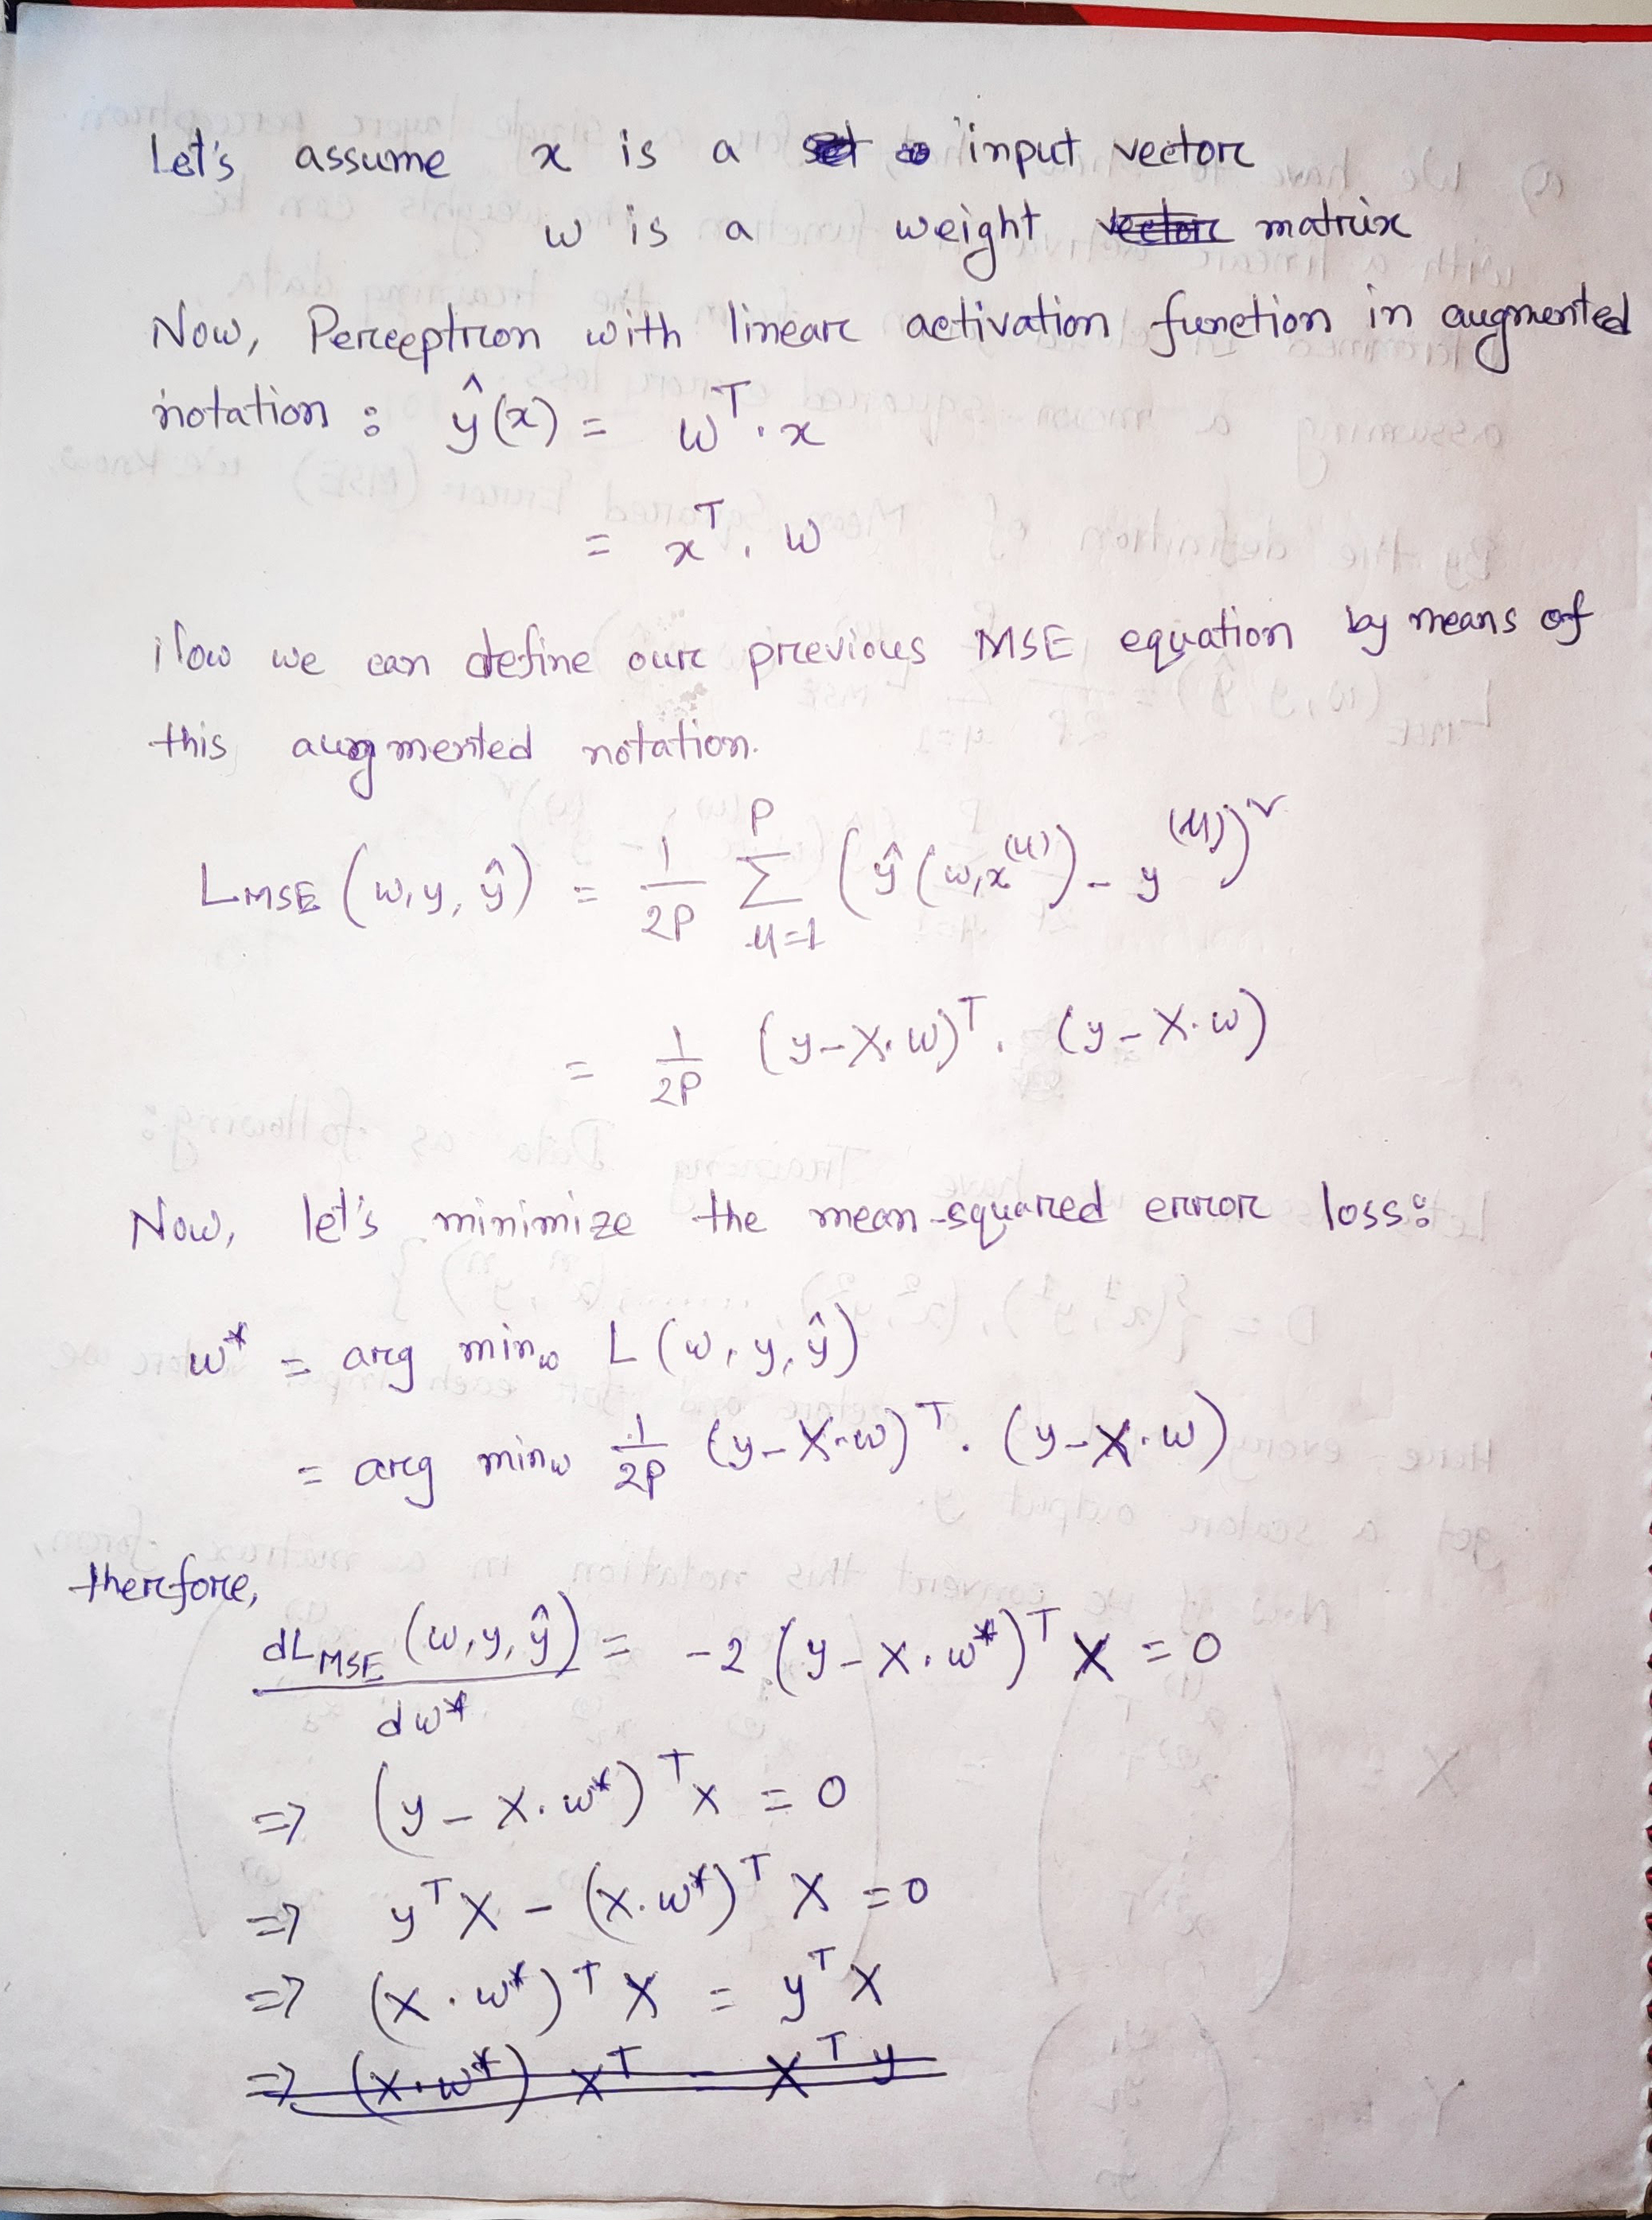 Let's assume x is a input vector
w is a weight matrix
Now, Perceptron with linear activation function in augmented
notation : ŷ(x) = w^T . x
= x^T . w
Now we can define our previous MSE equation by means of
this augmented notation.
L_MSE (w, y, ŷ) = 1/2P Σ_{μ=1}^{P} (ŷ(w, x^(μ)) - y^(μ))²
= 1/2P (y - X. w)^T . (y - X. w)
Now, let's minimize the mean-squared error loss:
w* = arg min_w L (w, y, ŷ)
= arg min_w 1/2P (y - X. w)^T . (y - X. w)
therefore,
dL_MSE (w, y, ŷ) / dw* = -2 (y - X. w*)^T X = 0
=> (y - X. w*)^T X = 0
=> y^T X - (X. w*)^T X = 0
=> (X . w*)^T X = y^T X
=> (X. w*) X^T = X^T y